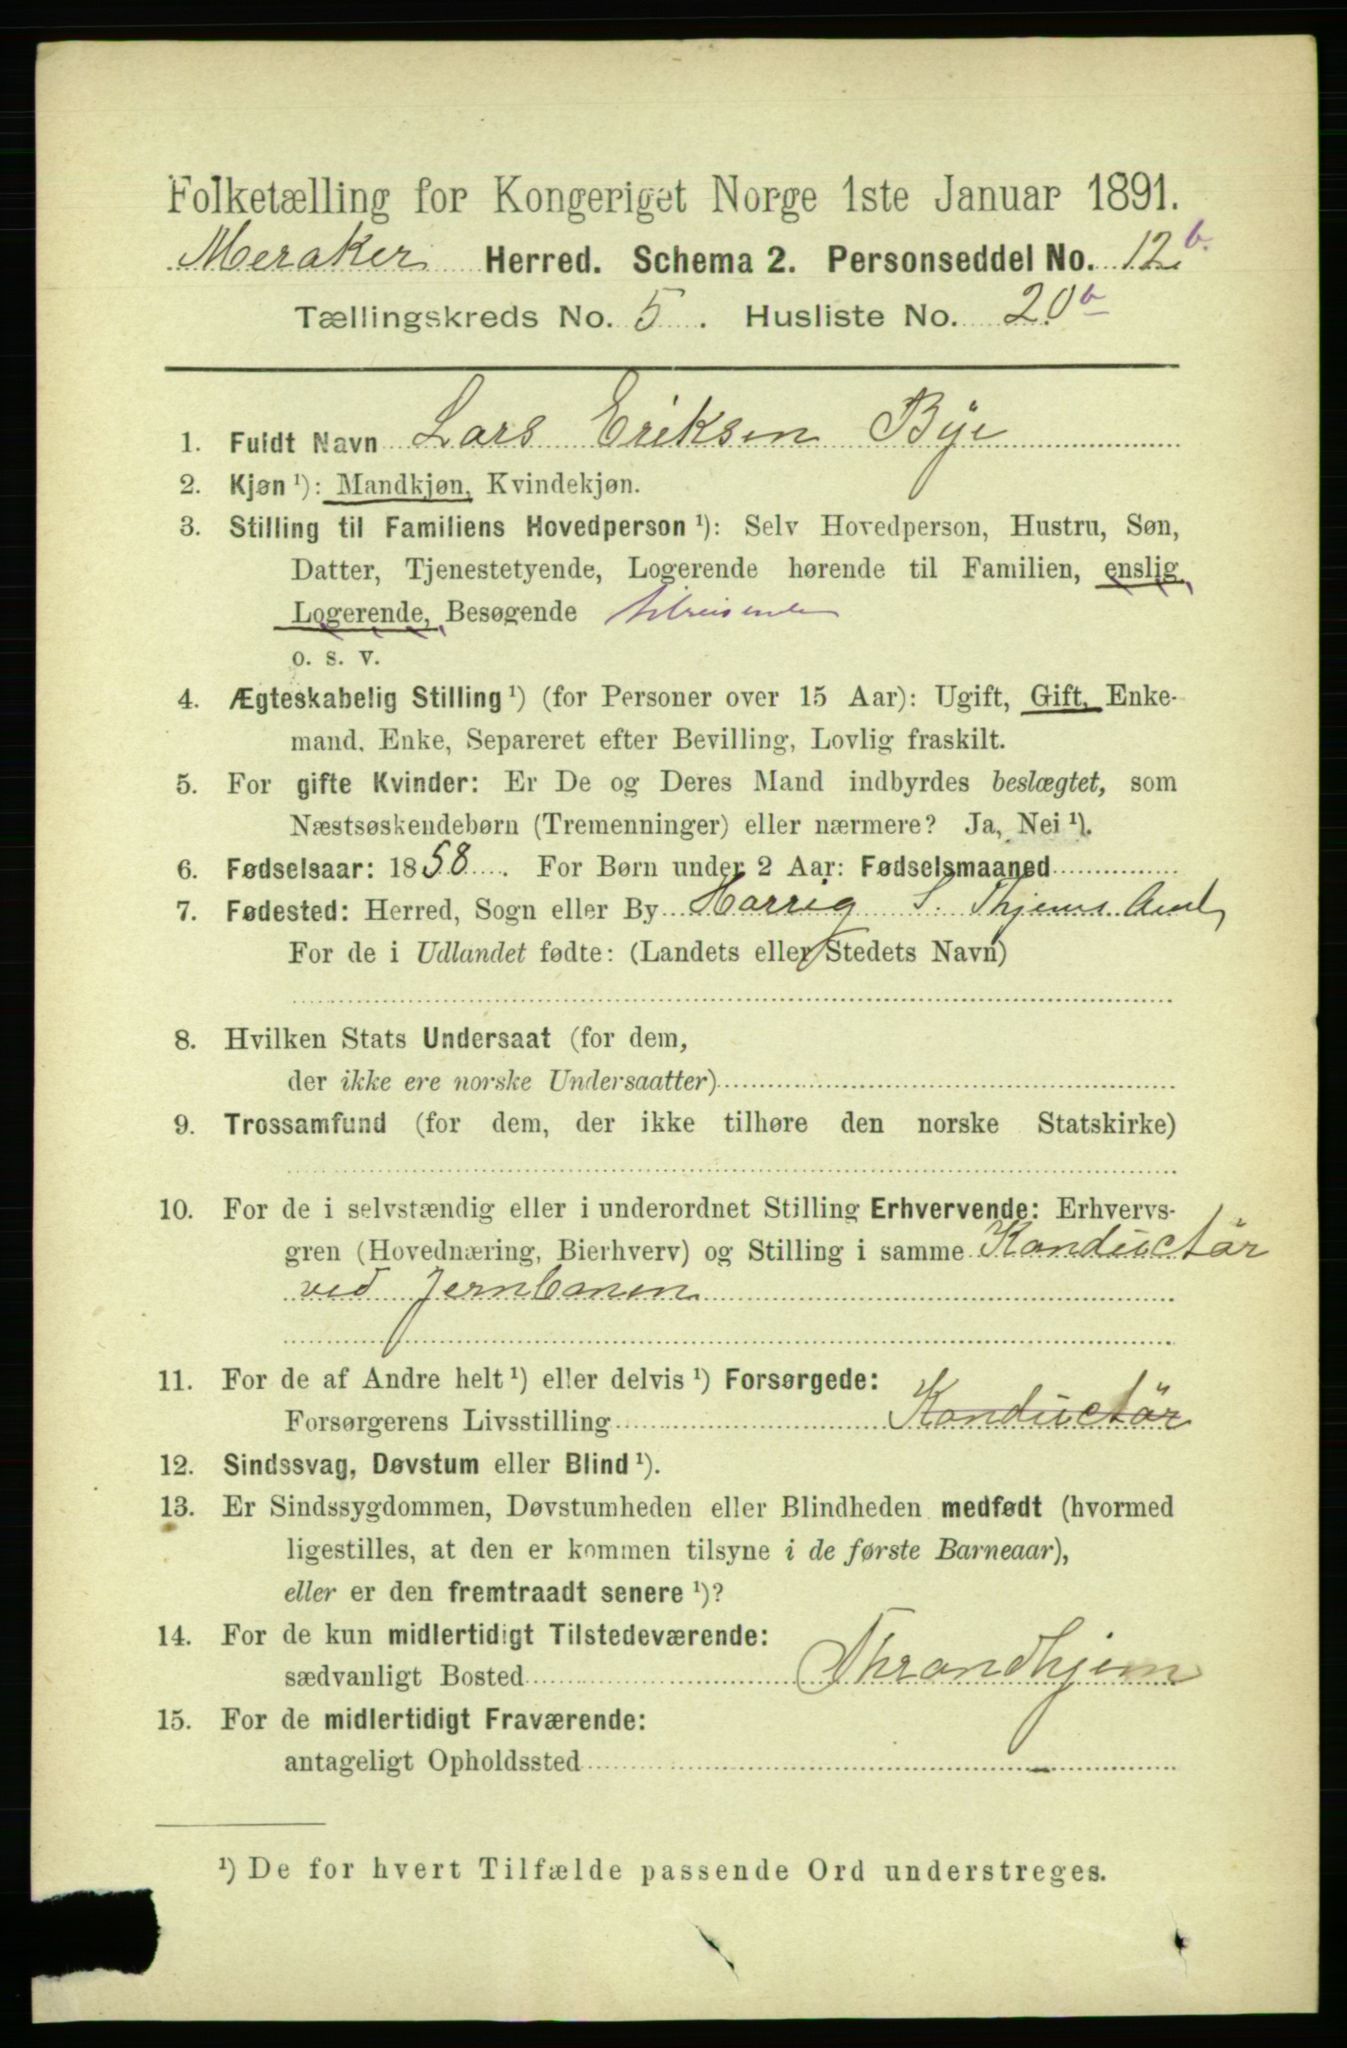 Folketælling for Kongeriget Norge 1ste Januar 1891.
Meraker Herred. Schema 2. Personseddel No. 12b.
Tællingskreds No. 5. Husliste No. 20b
1. Fuldt Navn Lars Eriksen Bye
2. Kjøn ¹): Mandkjøn, Kvindekjøn.
3. Stilling til Familiens Hovedperson ¹): Selv Hovedperson, Hustru, Søn,
Datter, Tjenestetyende, Logerende hørende til Familien, enslig
Logerende, Besøgende tilreisende
o. s. v.
4. Ægteskabelig Stilling ¹) (for Personer over 15 Aar): Ugift, Gift, Enke-
mand, Enke, Separeret efter Bevilling, Lovlig fraskilt.
5. For gifte Kvinder: Er De og Deres Mand indbyrdes beslægtet, som
Næstsøskendebørn (Tremenninger) eller nærmere? Ja, Nei ¹).
6. Fødselsaar: 1858. For Børn under 2 Aar: Fødselsmaaned
7. Fødested: Herred, Sogn eller By S. Thjems Amt
For de i Udlandet fødte: (Landets eller Stedets Navn)
8. Hvilken Stats Undersaat (for dem,
der ikke ere norske Undersaatter)
9. Trossamfund (for dem, der ikke tilhøre den norske Statskirke)
10. For de i selvstændig eller i underordnet Stilling Erhvervende: Erhvervs-
gren (Hovednæring, Bierhverv) og Stilling i samme Konductör
ved Jernbanen
11. For de af Andre helt ¹) eller delvis ¹) Forsørgede:
Forsørgerens Livsstilling Konductör
12. Sindssvag, Døvstum eller Blind ¹).
13. Er Sindssygdommen, Døvstumheden eller Blindheden medfødt (hvormed
ligestilles, at den er kommen tilsyne i de første Barneaar),
eller er den fremtraadt senere ¹)?
14. For de kun midlertidigt Tilstedeværende:
sædvanligt Bosted Throndhjem
15. For de midlertidigt Fraværende:
antageligt Opholdssted
¹) De for hvert Tilfælde passende Ord understreges.